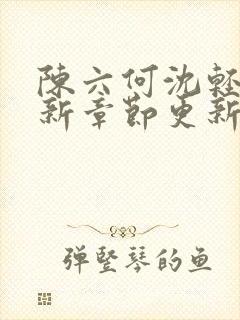 陳六何沈輕
新章節更新
弹竖琴的鱼